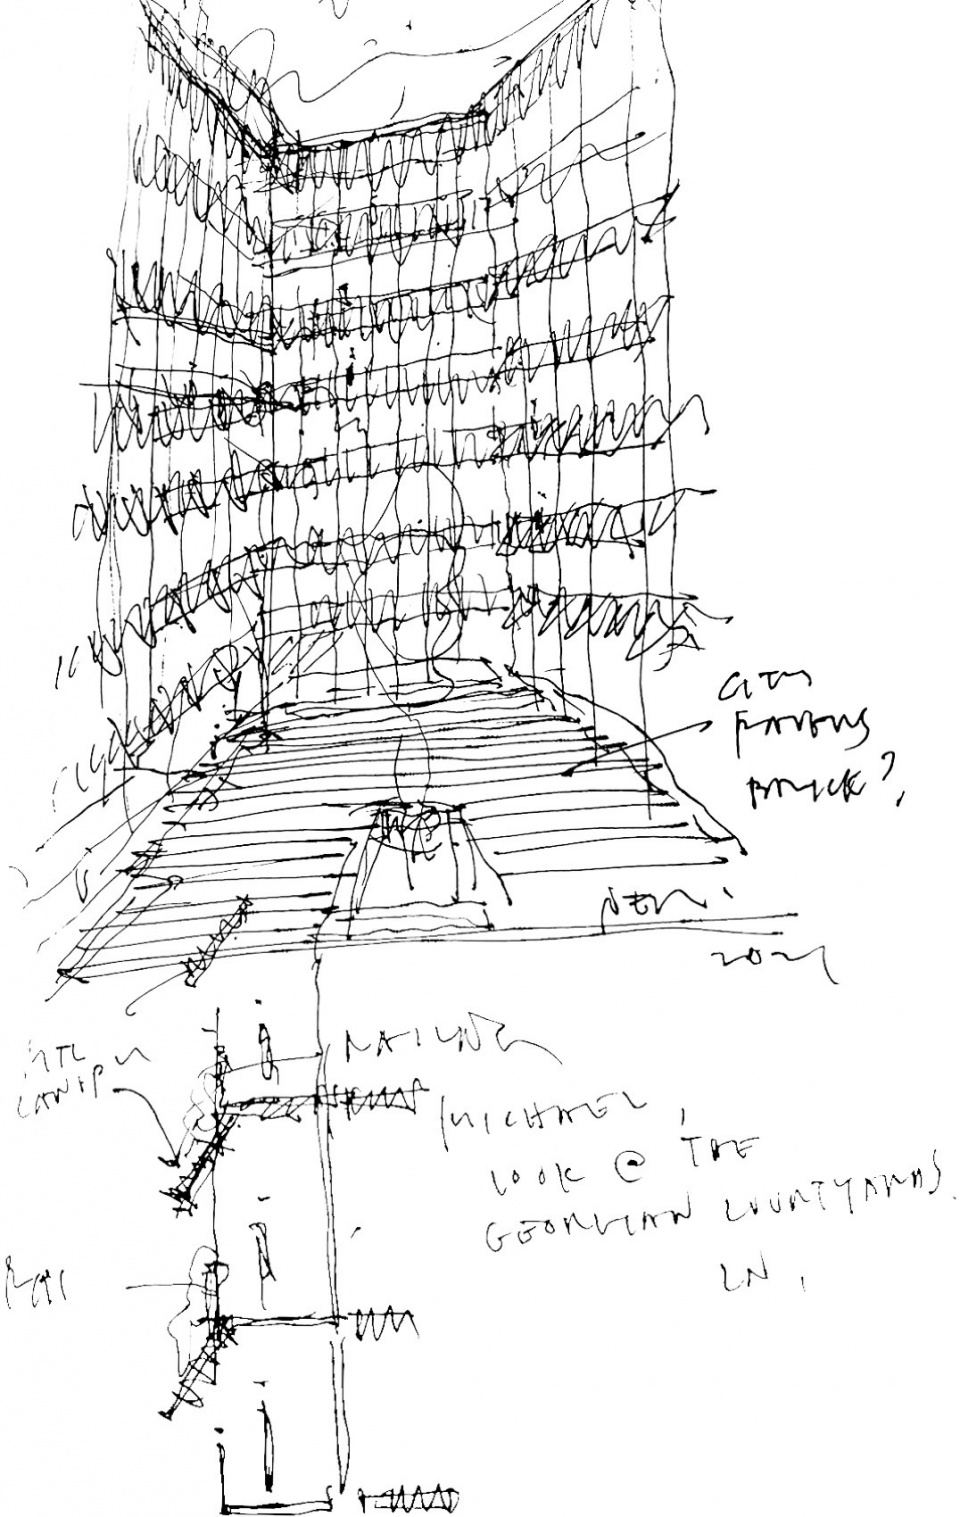 CITY
PAVING
BRICK?
2021
MTL
CANOPY
RAILING
MICHAEL,
LOOK @ THE
GEORGIAN COURTYARDS
LN,
RAIL